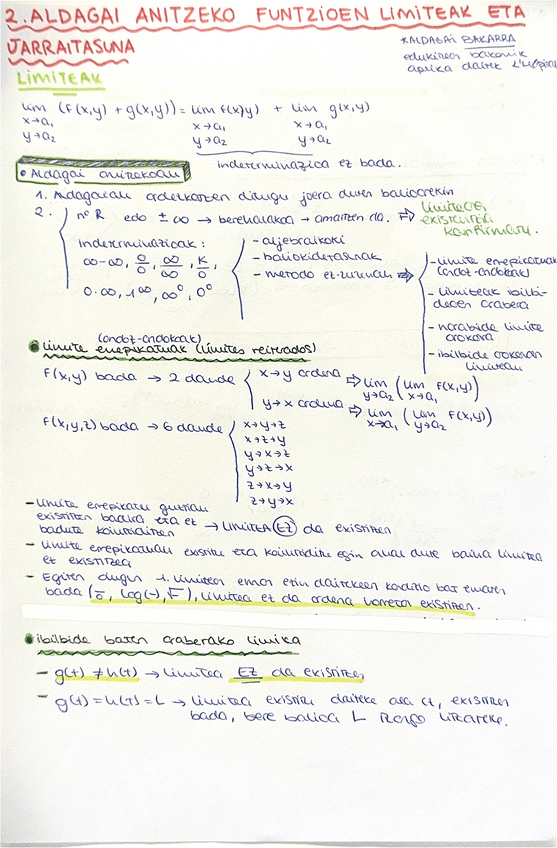 2. ALDAGAI ANITZEKO FUNTZIOEN LIMITEAK ETA
JARRAITASUNA
*ALDAGAI BAKARRA
edukitzen bakarrik
aplika daiteke L'Hôpital
LIMITEAK
lim (f(x,y) + g(x,y)) = lim f(x,y) + lim g(x,y)
x→a₁ x→a₁ x→a₁
y→a₂ y→a₂ y→a₂
indeterminazioa ez bada.
• Aldagai anitzekoan
1. Aldagaiak ordezkatzen ditugu joera duten balioarekin
2. nº R edo ± ∞ → berehalakoa → amaitzen da. ⇒ limitearen
existentzia
konfirmatu.
indeterminazioak:
∞-∞, 0/0, ∞/∞, K/0,
0·∞, 1^∞, ∞⁰, 0⁰
- aljebraikoki
- baliokidetasunak
- metodo ez-zuzenak ⇒
- limite errepikatuak
(ondoz-ondokoak)
- limiteak ibilbi-
deen arabera
- norabide limite
orokorra
- ibilbide orokorren
limiteak
(ondoz-ondokoak)
• limite errepikatuak (límites reiterados)
f(x,y) bada → 2 daude
x→y ordena ⇒ lim (lim f(x,y))
y→a₂ x→a₁
y→x ordena ⇒ lim (lim f(x,y))
x→a₁ y→a₂
f(x,y,z) bada → 6 daude
x→y→z
x→z→y
y→x→z
y→z→x
z→x→y
z→y→x
- limite errepikatu guztiak
existitzen badira eta ez → LIMITEA EZ da existitzen
badute koinziditzen
- limite errepikatuak existitu eta koinziditu egin ahal dute baina limitea
ez existitzea
- Egiten dugun 1. limitean eman ezin daitekeen kondizio bat ematen
bada (÷0, log(-), √-), limitea ez da ordena horretan existitzen.
• ibilbide baten araberako limitea
- g(t) ≠ h(t) → limitea EZ da existitzen
- g(t) = h(t) = L → limitea existitu daiteke ala ez, existitzen
bada, bere balioa L izango litzateke.